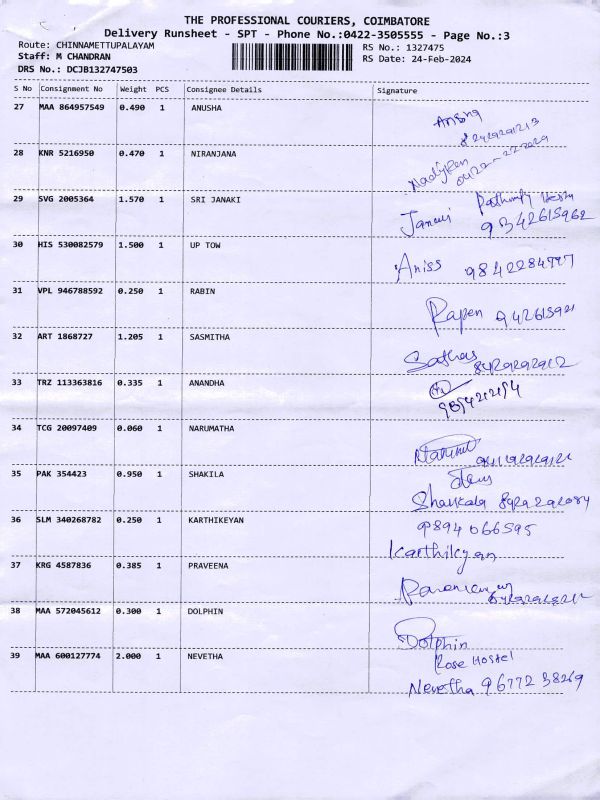 THE PROFESSIONAL COURIERS, COIMBATORE
Delivery Runsheet - SPT - Phone No.:0422-3505555 - Page No.:3
Route: CHINNAMETTUPALAYAM RS No.: 1327475
Staff: M CHANDRAN RS Date: 24-Feb-2024
DRS No.: DCJB132747503
S No Consignment No Weight PCS Consignee Details Signature
27 MAA 864957549 0.490 1 ANUSHA
28 KNR 5216950 0.470 1 NIRANJANA
29 SVG 2005364 1.570 1 SRI JANAKI
9342615962
30 HIS 530082579 1.500 1 UP TOW
Aniss
31 VPL 946788592 0.250 1 RABIN
Rapen
32 ART 1868727 1.205 1 SASMITHA
Sathas
33 TRZ 113363816 0.335 1 ANANDHA
34 TCG 20097409 0.060 1 NARUMATHA
35 PAK 354423 0.950 1 SHAKILA
Shankala
36 SLM 340268782 0.250 1 KARTHIKEYAN
9894066595
Karthikeyan
37 KRG 4587836 0.385 1 PRAVEENA
38 MAA 572045612 0.300 1 DOLPHIN
Dolphin
39 MAA 600127774 2.000 1 NEVETHA
Rose Hostel
Nevetha 9677238269